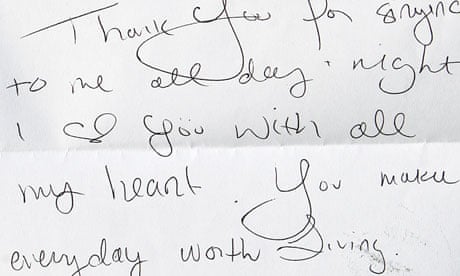 Thank You for singing
to me all day · night
I ♡ you with all
my heart. You make
everyday worth living